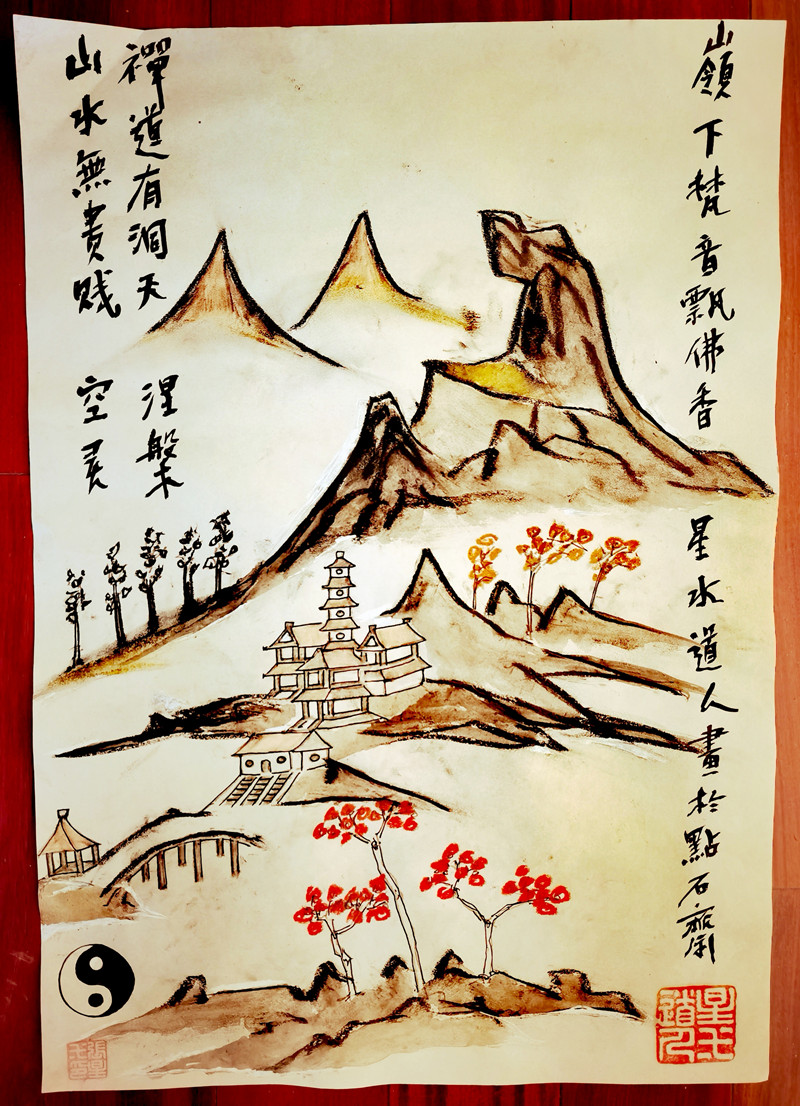 山嶺下梵音飄佛香 星水道人畫於點石齋
禪道有洞天 涅槃
山水無貴賤 空灵